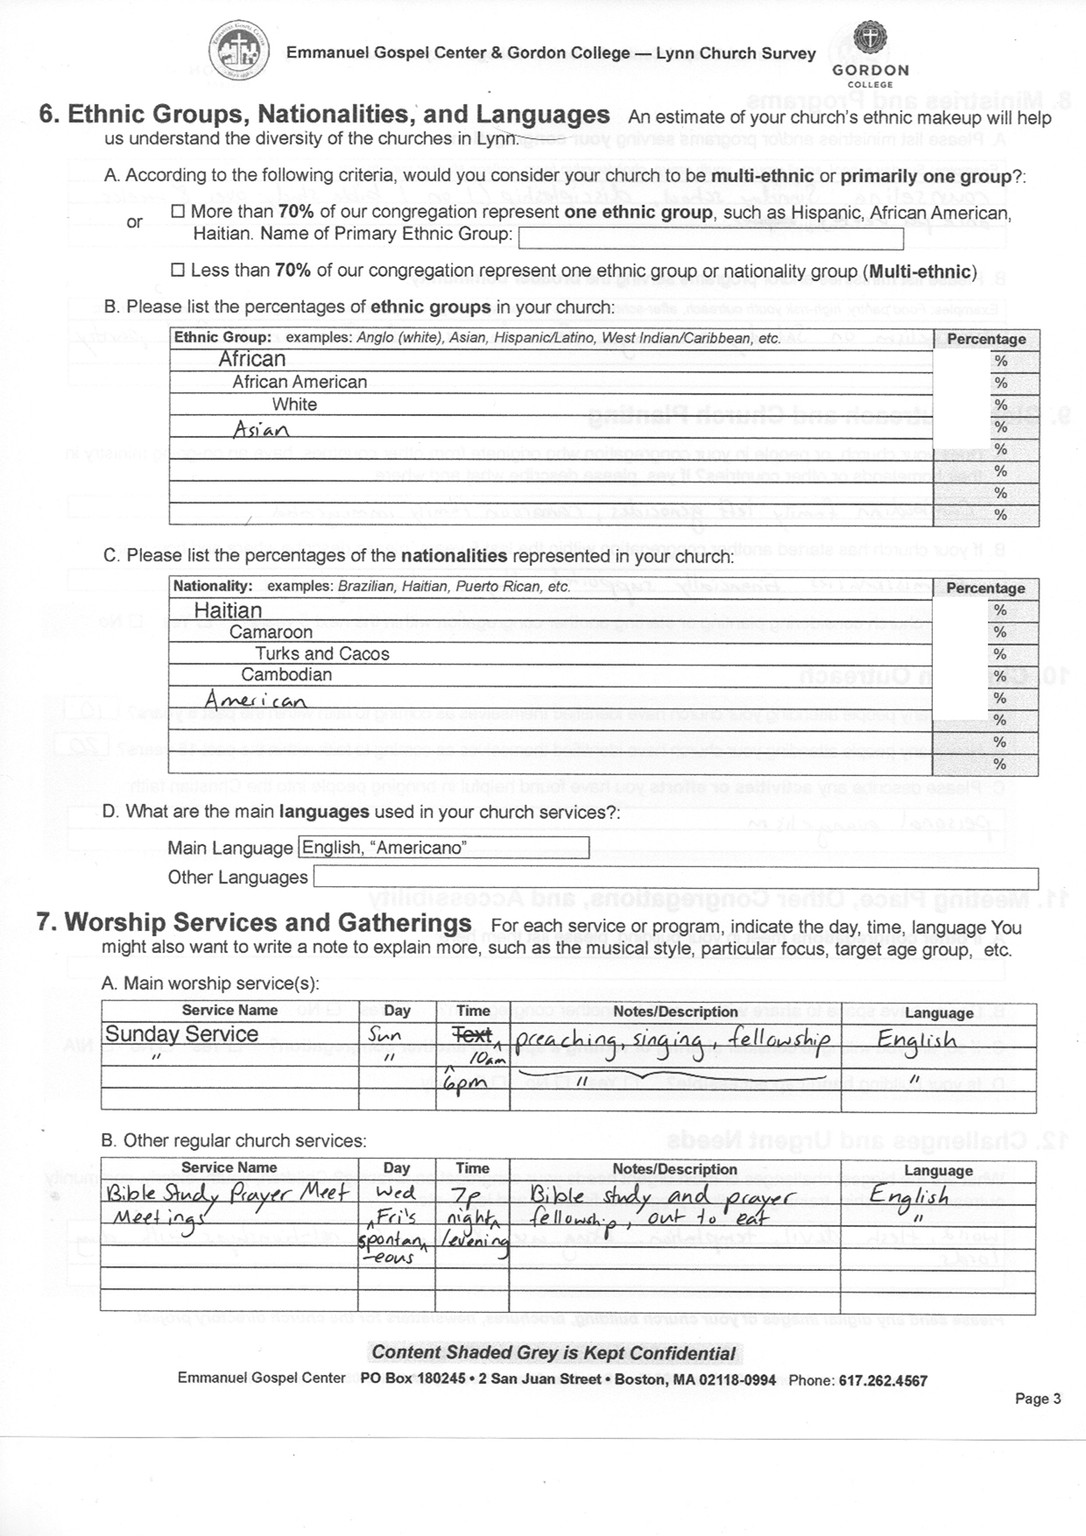 Emmanuel Gospel Center & Gordon College — Lynn Church Survey
GORDON
COLLEGE
6. Ethnic Groups, Nationalities, and Languages An estimate of your church's ethnic makeup will help
us understand the diversity of the churches in Lynn.
A. According to the following criteria, would you consider your church to be multi-ethnic or primarily one group?:
or
☐ More than 70% of our congregation represent one ethnic group, such as Hispanic, African American,
Haitian. Name of Primary Ethnic Group:
☐ Less than 70% of our congregation represent one ethnic group or nationality group (Multi-ethnic)
B. Please list the percentages of ethnic groups in your church:
Ethnic Group: examples: Anglo (white), Asian, Hispanic/Latino, West Indian/Caribbean, etc. Percentage
African %
African American %
White %
Asian %
%
%
%
%
C. Please list the percentages of the nationalities represented in your church:
Nationality: examples: Brazilian, Haitian, Puerto Rican, etc. Percentage
Haitian %
Camaroon %
Turks and Cacos %
Cambodian %
American %
%
%
%
D. What are the main languages used in your church services?:
Main Language English, "Americano"
Other Languages
7. Worship Services and Gatherings For each service or program, indicate the day, time, language You
might also want to write a note to explain more, such as the musical style, particular focus, target age group, etc.
A. Main worship service(s):
Service Name Day Time Notes/Description Language
Sunday Service Sun Text preaching, singing, fellowship English
" " 10am
6pm " "
B. Other regular church services:
Service Name Day Time Notes/Description Language
Bible Study Prayer Meet Wed 7p Bible study and prayer English
Meetings Fri's night fellowship, out to eat "
spontan /evening
-eous
Content Shaded Grey is Kept Confidential
Emmanuel Gospel Center PO Box 180245 • 2 San Juan Street • Boston, MA 02118-0994 Phone: 617.262.4567
Page 3